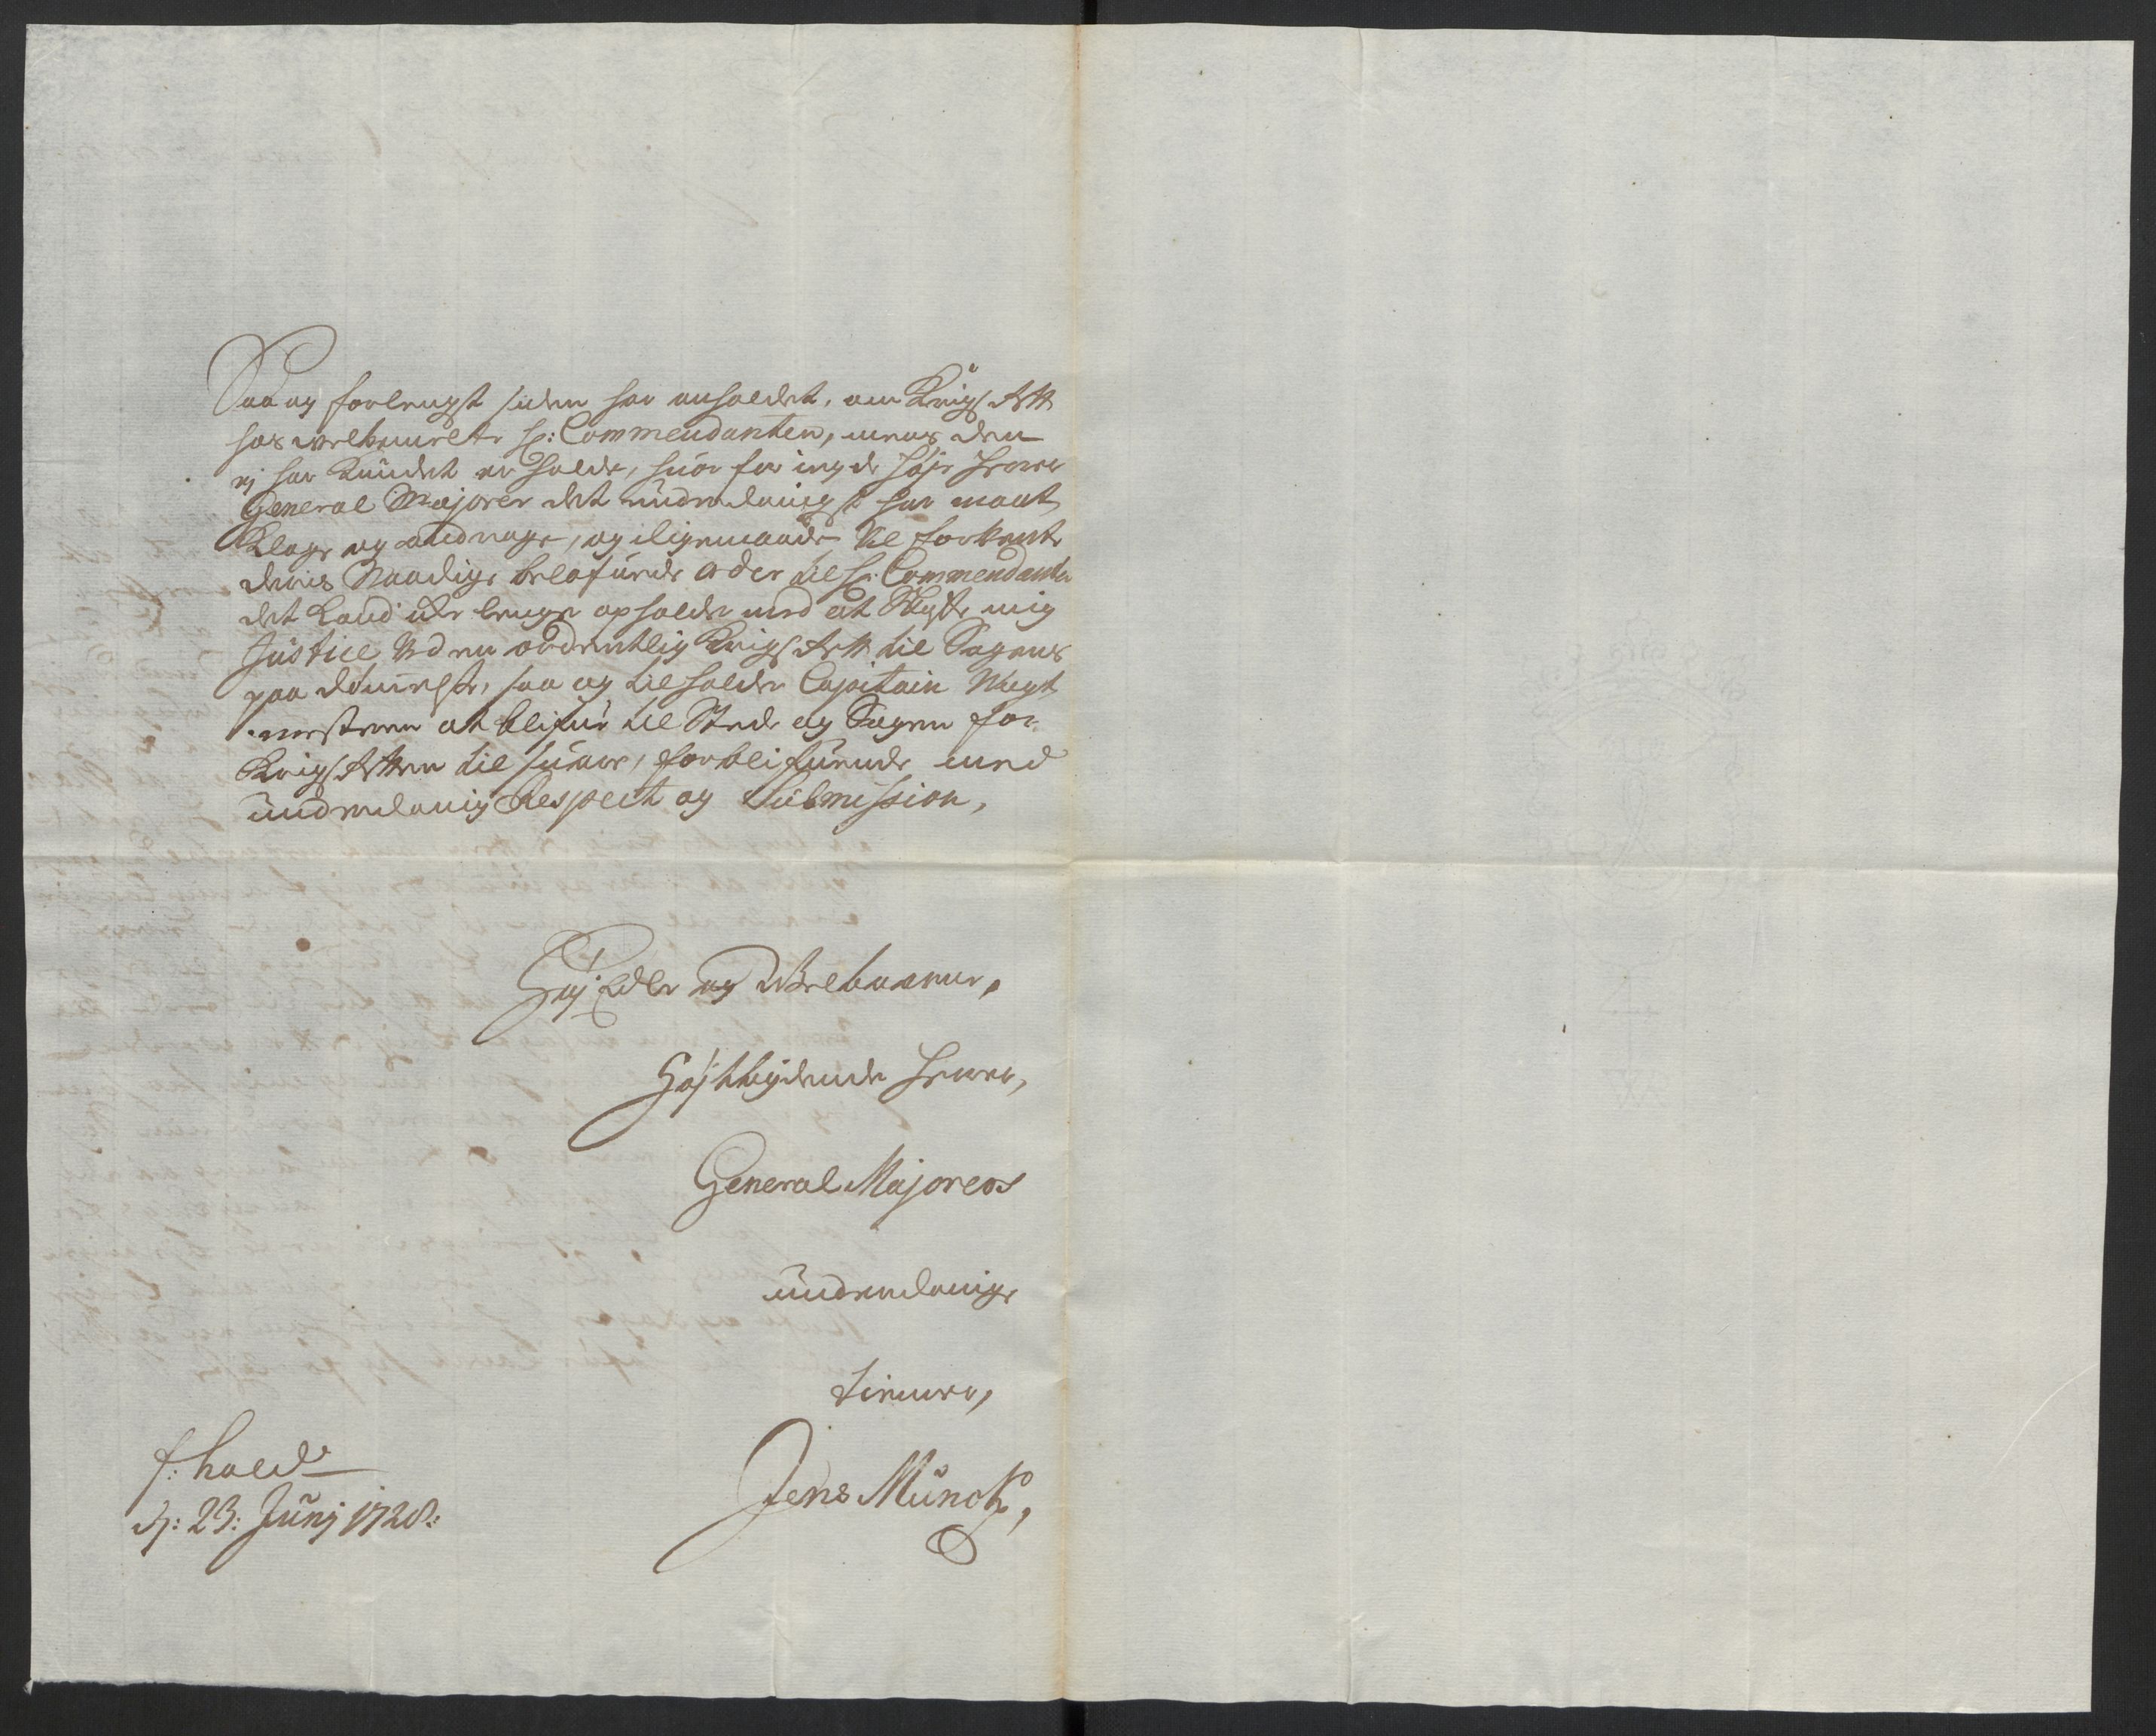 Saa og forlengst siden har anholdet, om Krigs Rett
hos welbemelte H: Commendanten, mens den
ej har Kundet erholde, huor for jeg de Høje Herrer
General Majorer det underdanigst har maat
Klage og andrage, og iligemaade vil forvente
deris Naadige belefuende order til H: Commendanten
det hand icke lenger opholder med at Skaffe mig
Justice Ved en ordentlig Krigs Rett til Sagens
paa dømmelse, saa og tilholder Capitain Vagt
mesteren at blifue til Stede og Sagen for
Krigs Retten til suare, forblifuende med
underdanig Respect og Submission,
Høj Edle og Welbaarne,
Højbydende Herrer,
General Majorers
underdanige
tienner,
Jens Münck,
f: hald
d: 23: Junj 1728: